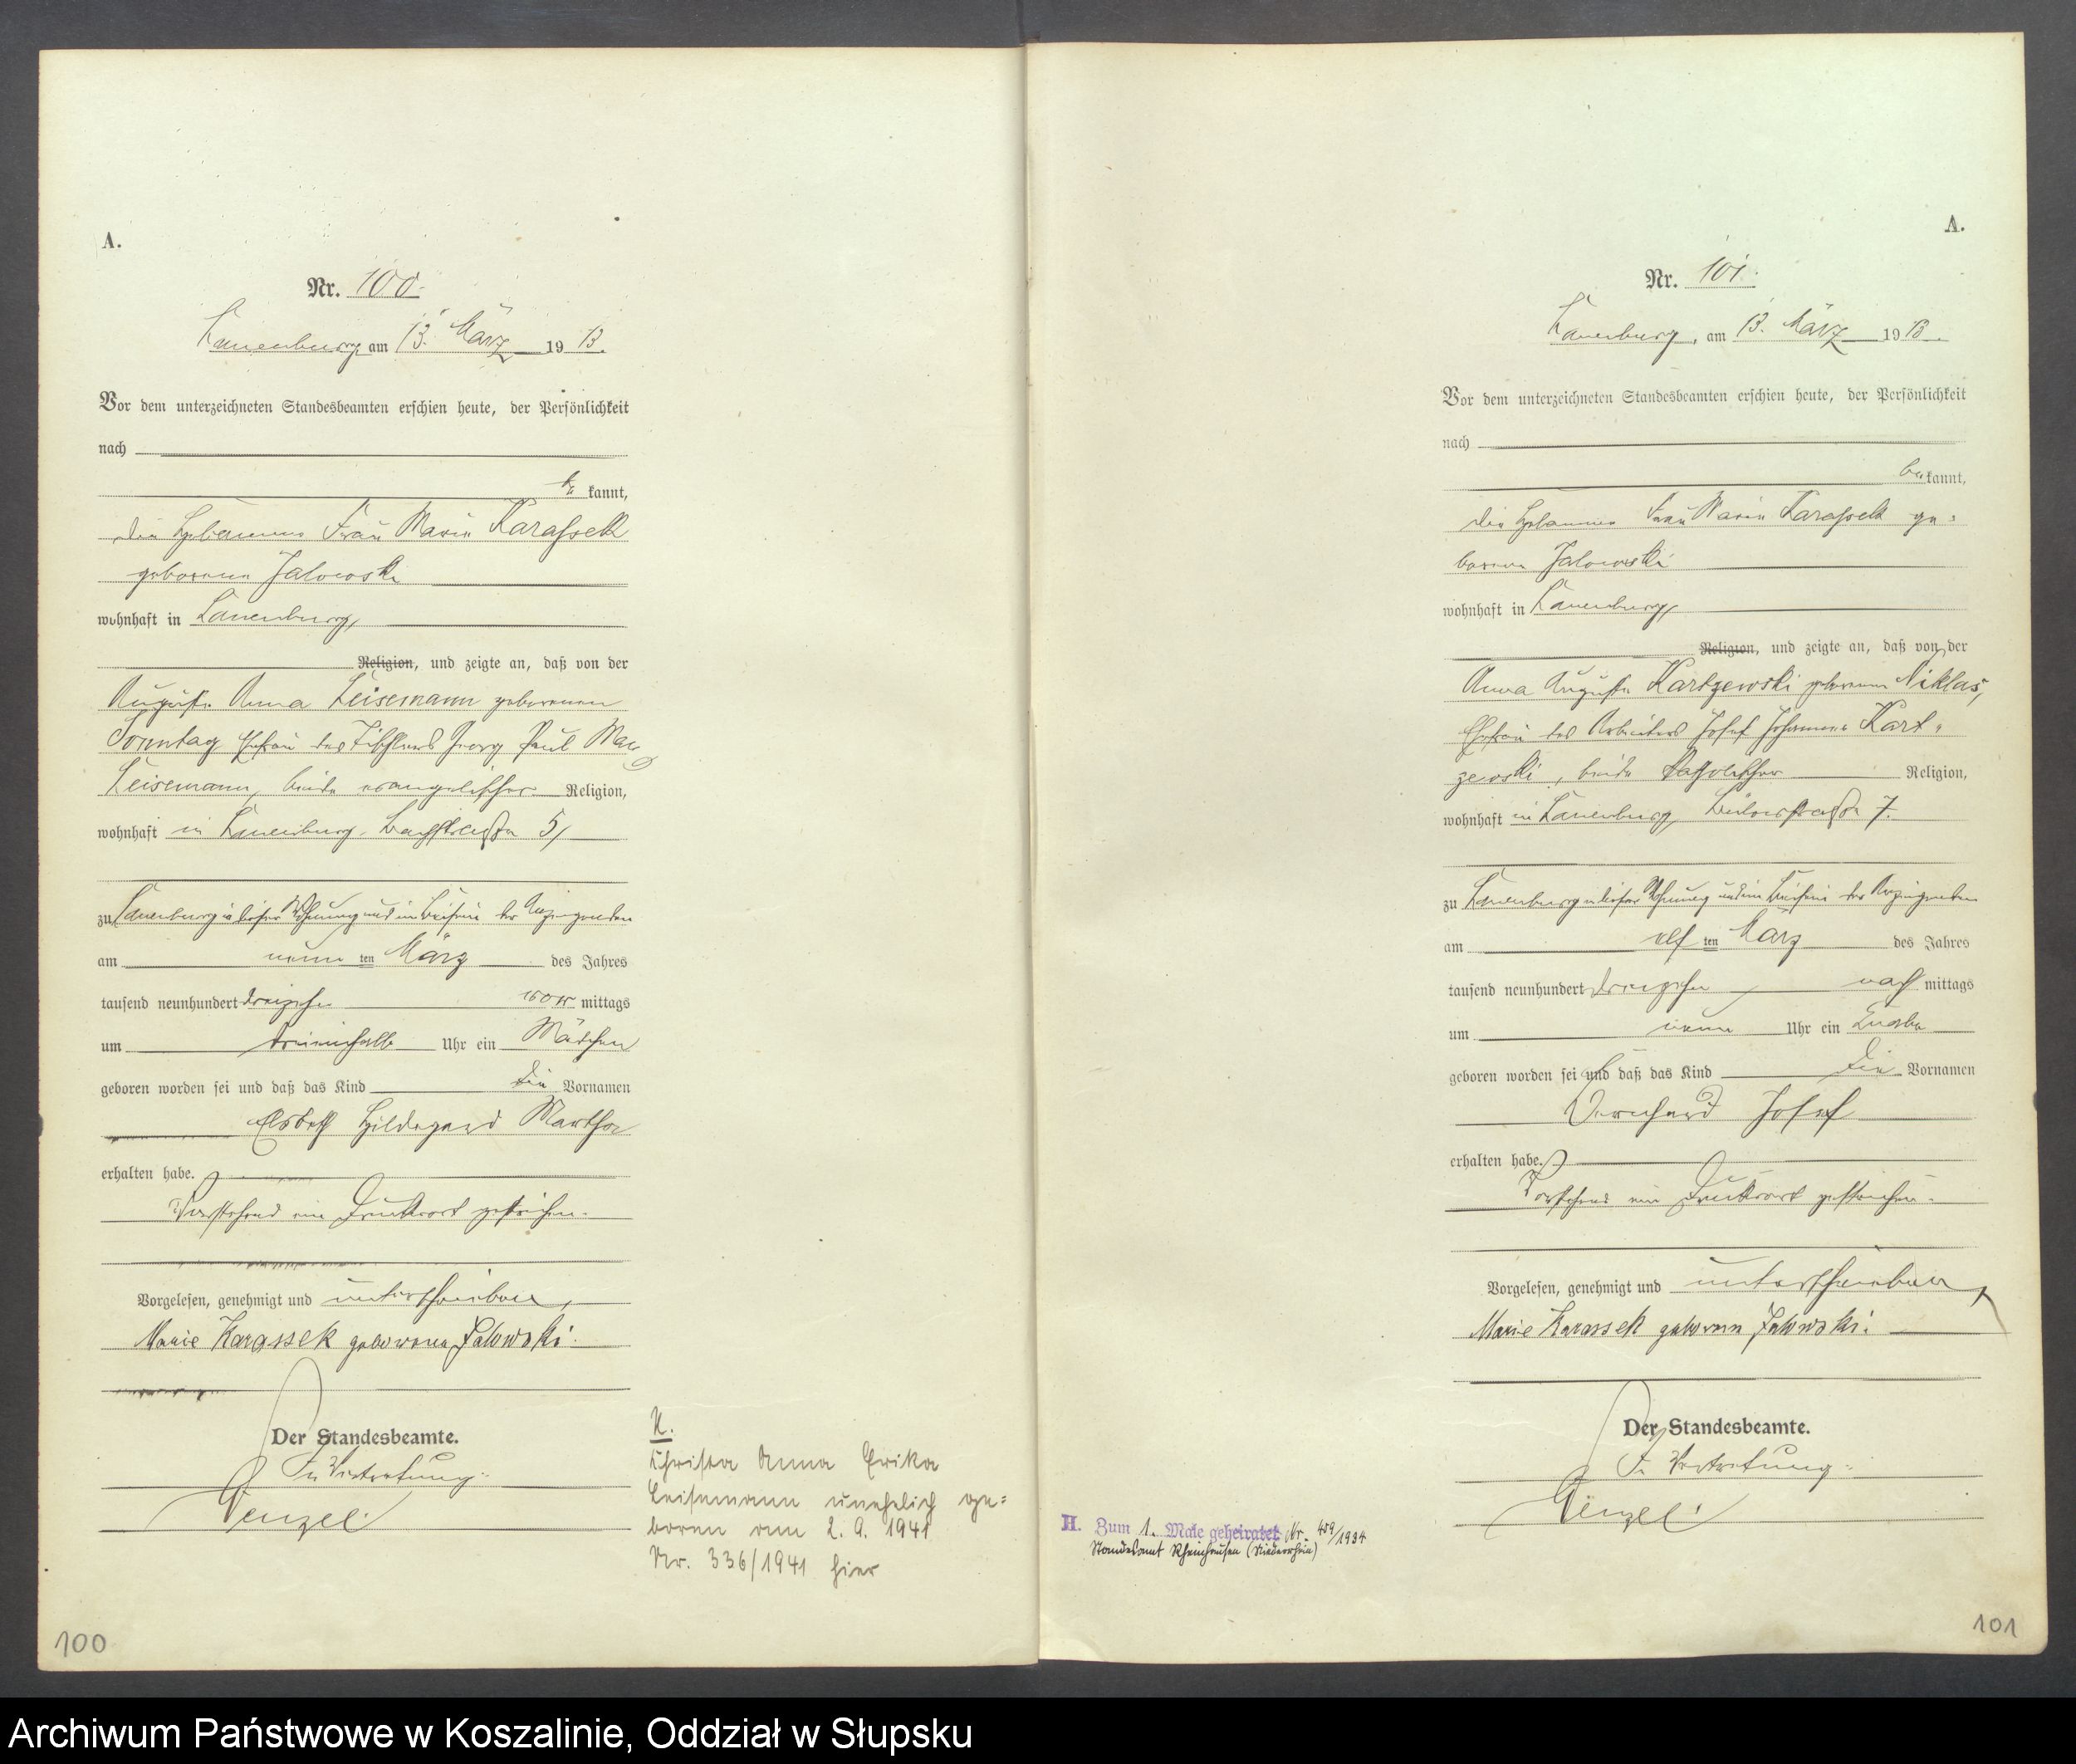 A.
Nr. 100.
Lauenburg, am 13. März 1913.
Vor dem unterzeichneten Standesbeamten erschien heute, der Persönlichkeit
nach
be kannt,
die Hebamme Frau Marie Karassek
geborene Jalowski
wohnhaft in Lauenburg,
Religion, und zeigte an, daß von der
Auguste Anna Leisemann geborenen
Sonntag Ehefrau des Tischlers Georg Paul Max
Leisemann, beide evangelischer Religion,
wohnhaft in Lauenburg, 5,
zu Lauenburg in dieser Wohnung und im Beisein der Anzeigenden
am neun ten März des Jahres
tausend neunhundert dreizehn vor mittags
um Uhr ein Mädchen
geboren worden sei und daß das Kind die Vornamen
Elsbeth Hildegard Martha
erhalten habe.
Vorstehend ein Druckwort gestrichen.
Vorgelesen, genehmigt und unterschrieben,
Marie Karassek geborene Jalowski.
Der Standesbeamte.
In Vertretung:
Wenzel.
K.
Christa Anna Erika
Leisemann unehelich ge=
boren am 2. 9. 1941
Nr. 336/1941 hier
100
A.
Nr. 101.
Lauenburg, am 13. März 1913.
Vor dem unterzeichneten Standesbeamten erschien heute, der Persönlichkeit
nach
be kannt,
die Hebamme Frau Marie Karassek ge=
borene Jalowski
wohnhaft in Lauenburg,
Religion, und zeigte an, daß von der
Anna Auguste Kartzewski geborenen Niklas,
Ehefrau des Arbeiters Josef Johannes Kart=
zewski, beide katholischer Religion,
wohnhaft in Lauenburg, Bülowstraße 7.
zu Lauenburg in dieser Wohnung und im Beisein der Anzeigenden
am elf ten März des Jahres
tausend neunhundert dreizehn nach mittags
um neun Uhr ein Knabe
geboren worden sei und daß das Kind die Vornamen
Bernhard Josef
erhalten habe.
Vorstehend ein Druckwort gestrichen.
Vorgelesen, genehmigt und unterschrieben,
Marie Karassek geborene Jalowski.
Der Standesbeamte.
In Vertretung:
Wenzel.
H. Zum 1. Male geheiratet Nr. 459/1934
Standesamt Rheinhausen (Niederrhein)
101
Archiwum Państwowe w Koszalinie, Oddział w Słupsku